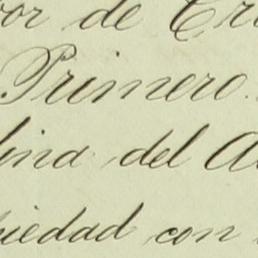 or de
Primero.
lina del
piedad con